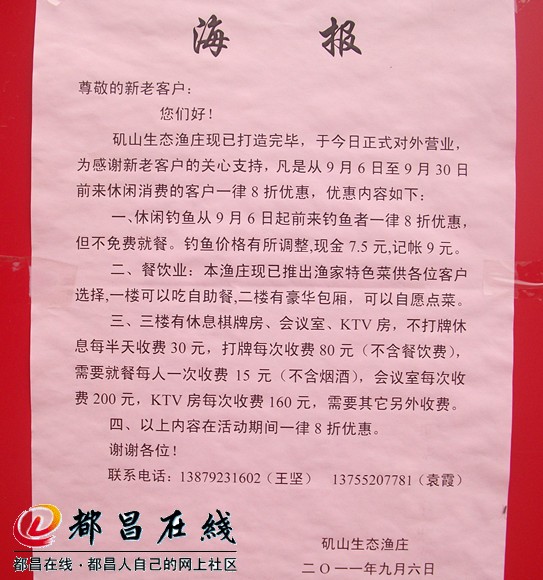 海 报
尊敬的新老客户：
您们好！
矶山生态渔庄现已打造完毕，于今日正式对外营业，
为感谢新老客户的关心支持，凡是从 9 月 6 日至 9 月 30 日
前来休闲消费的客户一律 8 折优惠，优惠内容如下：
一、休闲钓鱼从 9 月 6 日起前来钓鱼者一律 8 折优惠，
但不免费就餐。钓鱼价格有所调整,现金 7.5 元,记帐 9 元。
二、餐饮业：本渔庄现已推出渔家特色菜供各位客户
选择,一楼可以吃自助餐,二楼有豪华包厢，可以自愿点菜。
三、三楼有休息棋牌房、会议室、KTV 房，不打牌休
息每半天收费 30 元，打牌每次收费 80 元（不含餐饮费），
需要就餐每人一次收费 15 元（不含烟酒），会议室每次收
费 200 元，KTV 房每次收费 160 元，需要其它另外收费。
四、以上内容在活动期间一律 8 折优惠。
谢谢各位！
联系电话：13879231602（王坚） 13755207781（袁霞）
矶山生态渔庄
二〇一一年九月六日
都昌在线
都昌在线·都昌人自己的网上社区